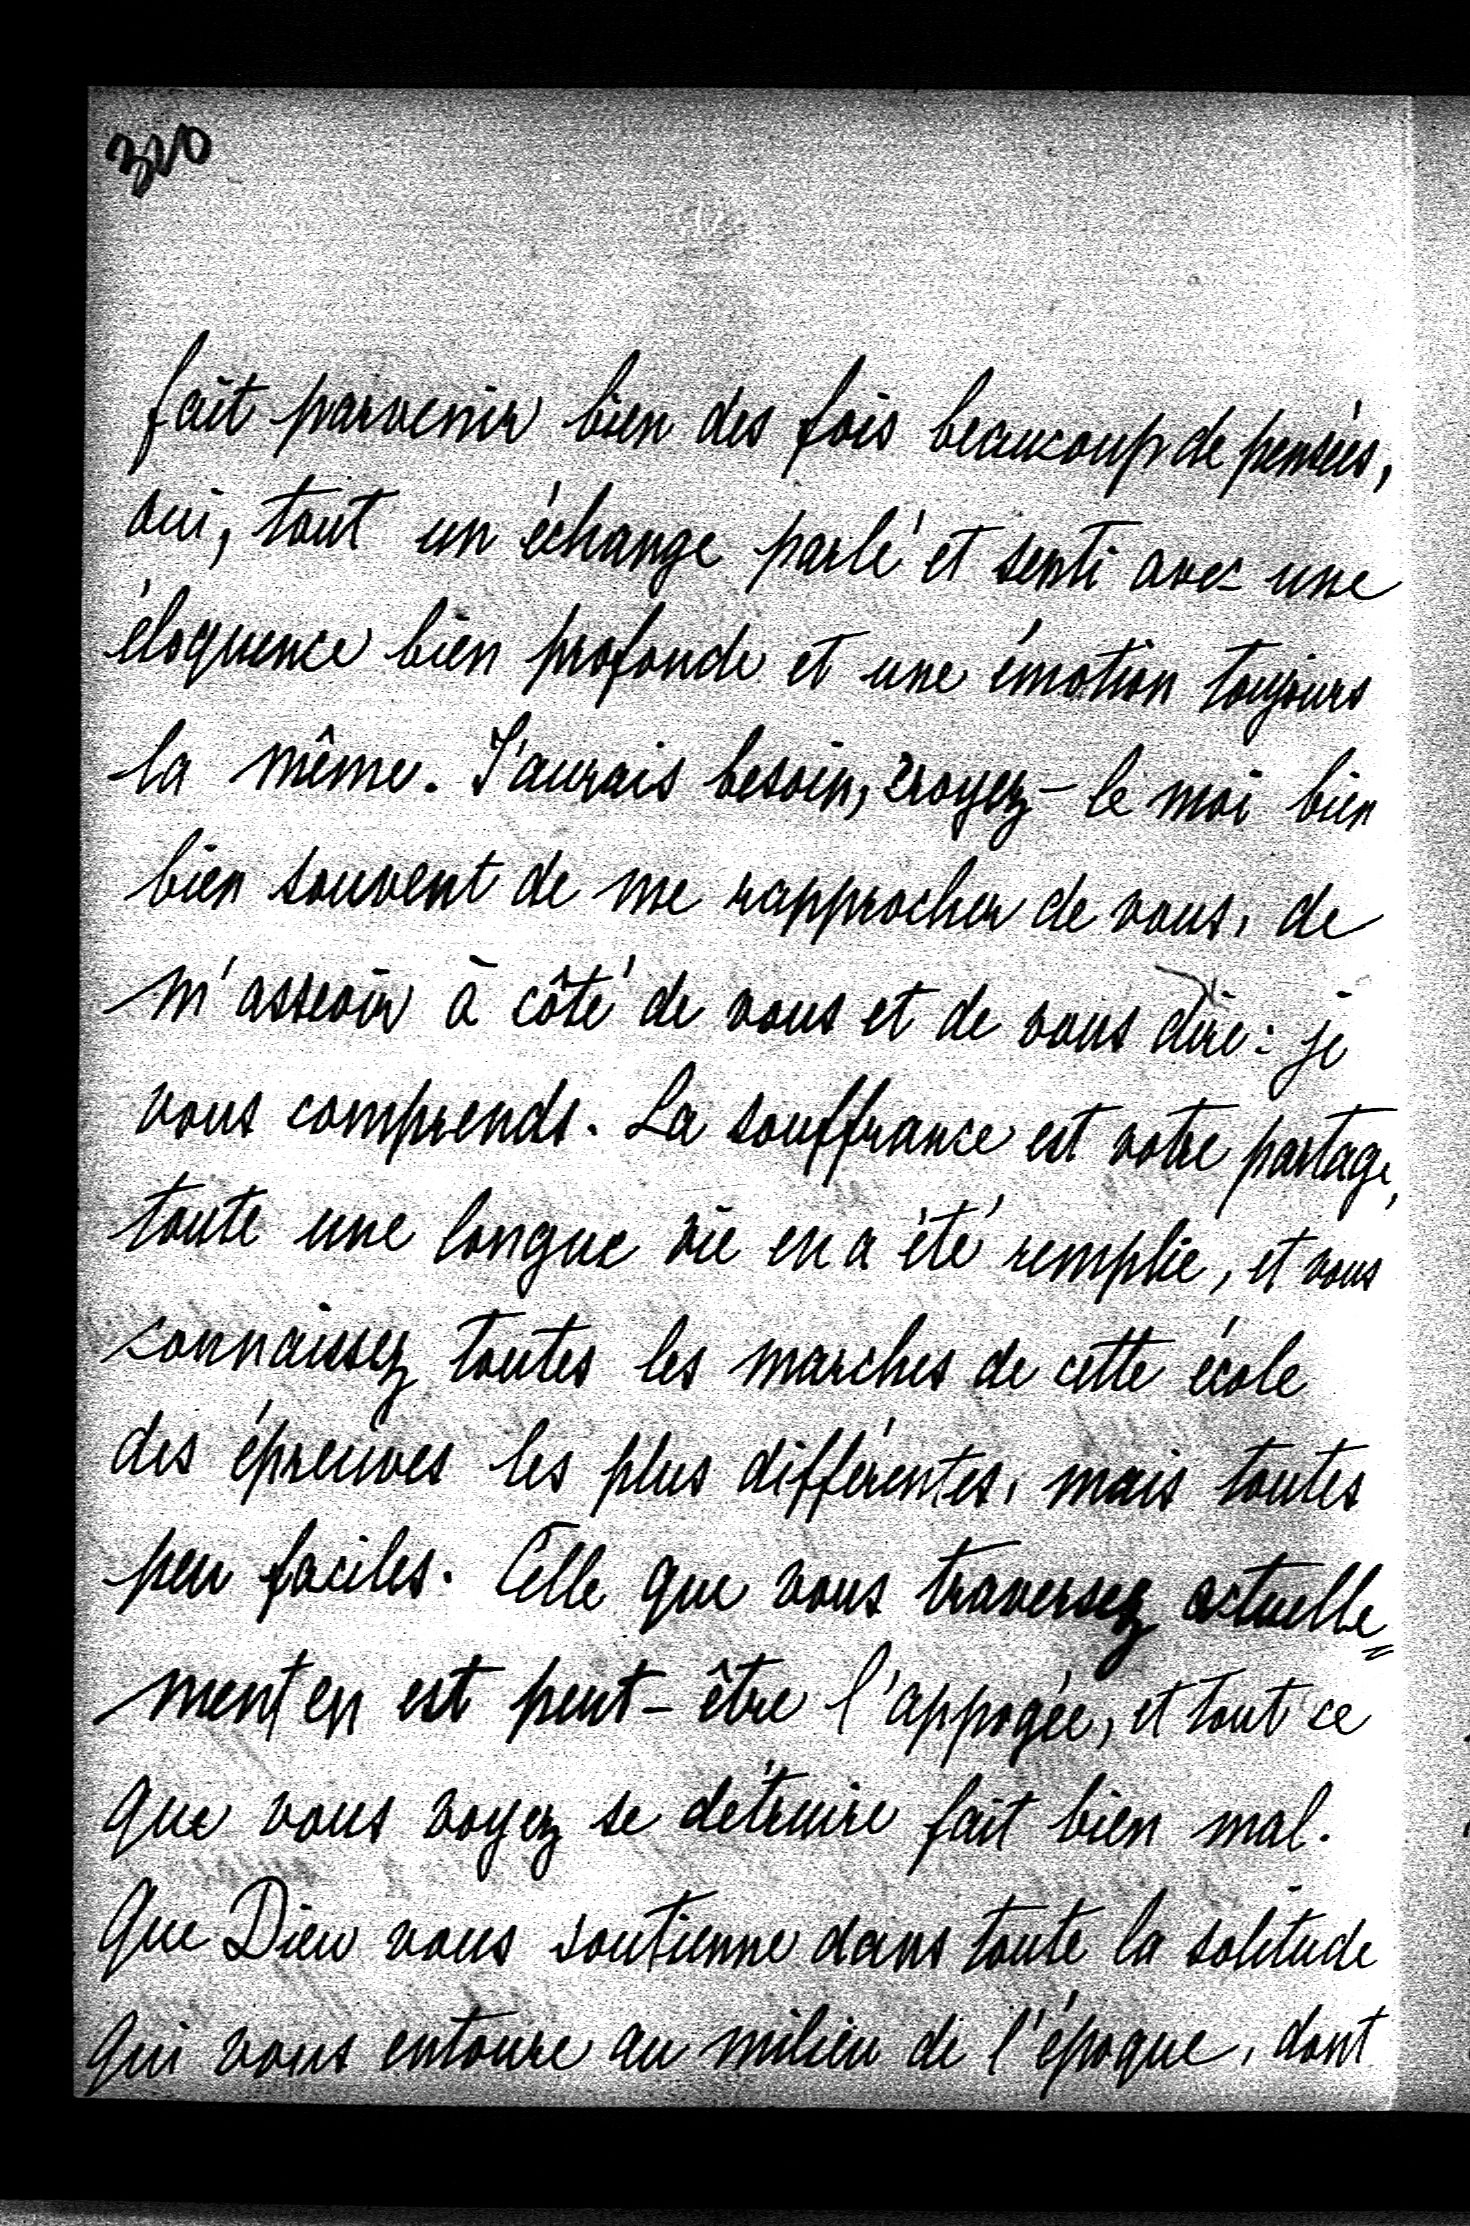 320
fait parvenir bien des fois beaucoup de pensées,
oui, tout un échange parlé et senti avec une
éloquence bien profonde et une émotion toujours
la même. J'aurais besoin, croyez-le moi bien
bien souvent de me rapprocher de vous, de
m'asseoir à côté de vous et de vous dire: je
vous comprends. La souffrance est votre partage,
toute une longue vie en a été remplie, et vous
connaissez toutes les marches de cette école
des épreuves les plus différentes, mais toutes
peu faciles. Celle que vous traversez actuelle=
ment en est peut-être l'appogée, et tout ce
que vous voyez se détruire fait bien mal.
Que Dieu vous soutienne dans toute la solitude
qui vous entoure au milieu de l'époque, dont